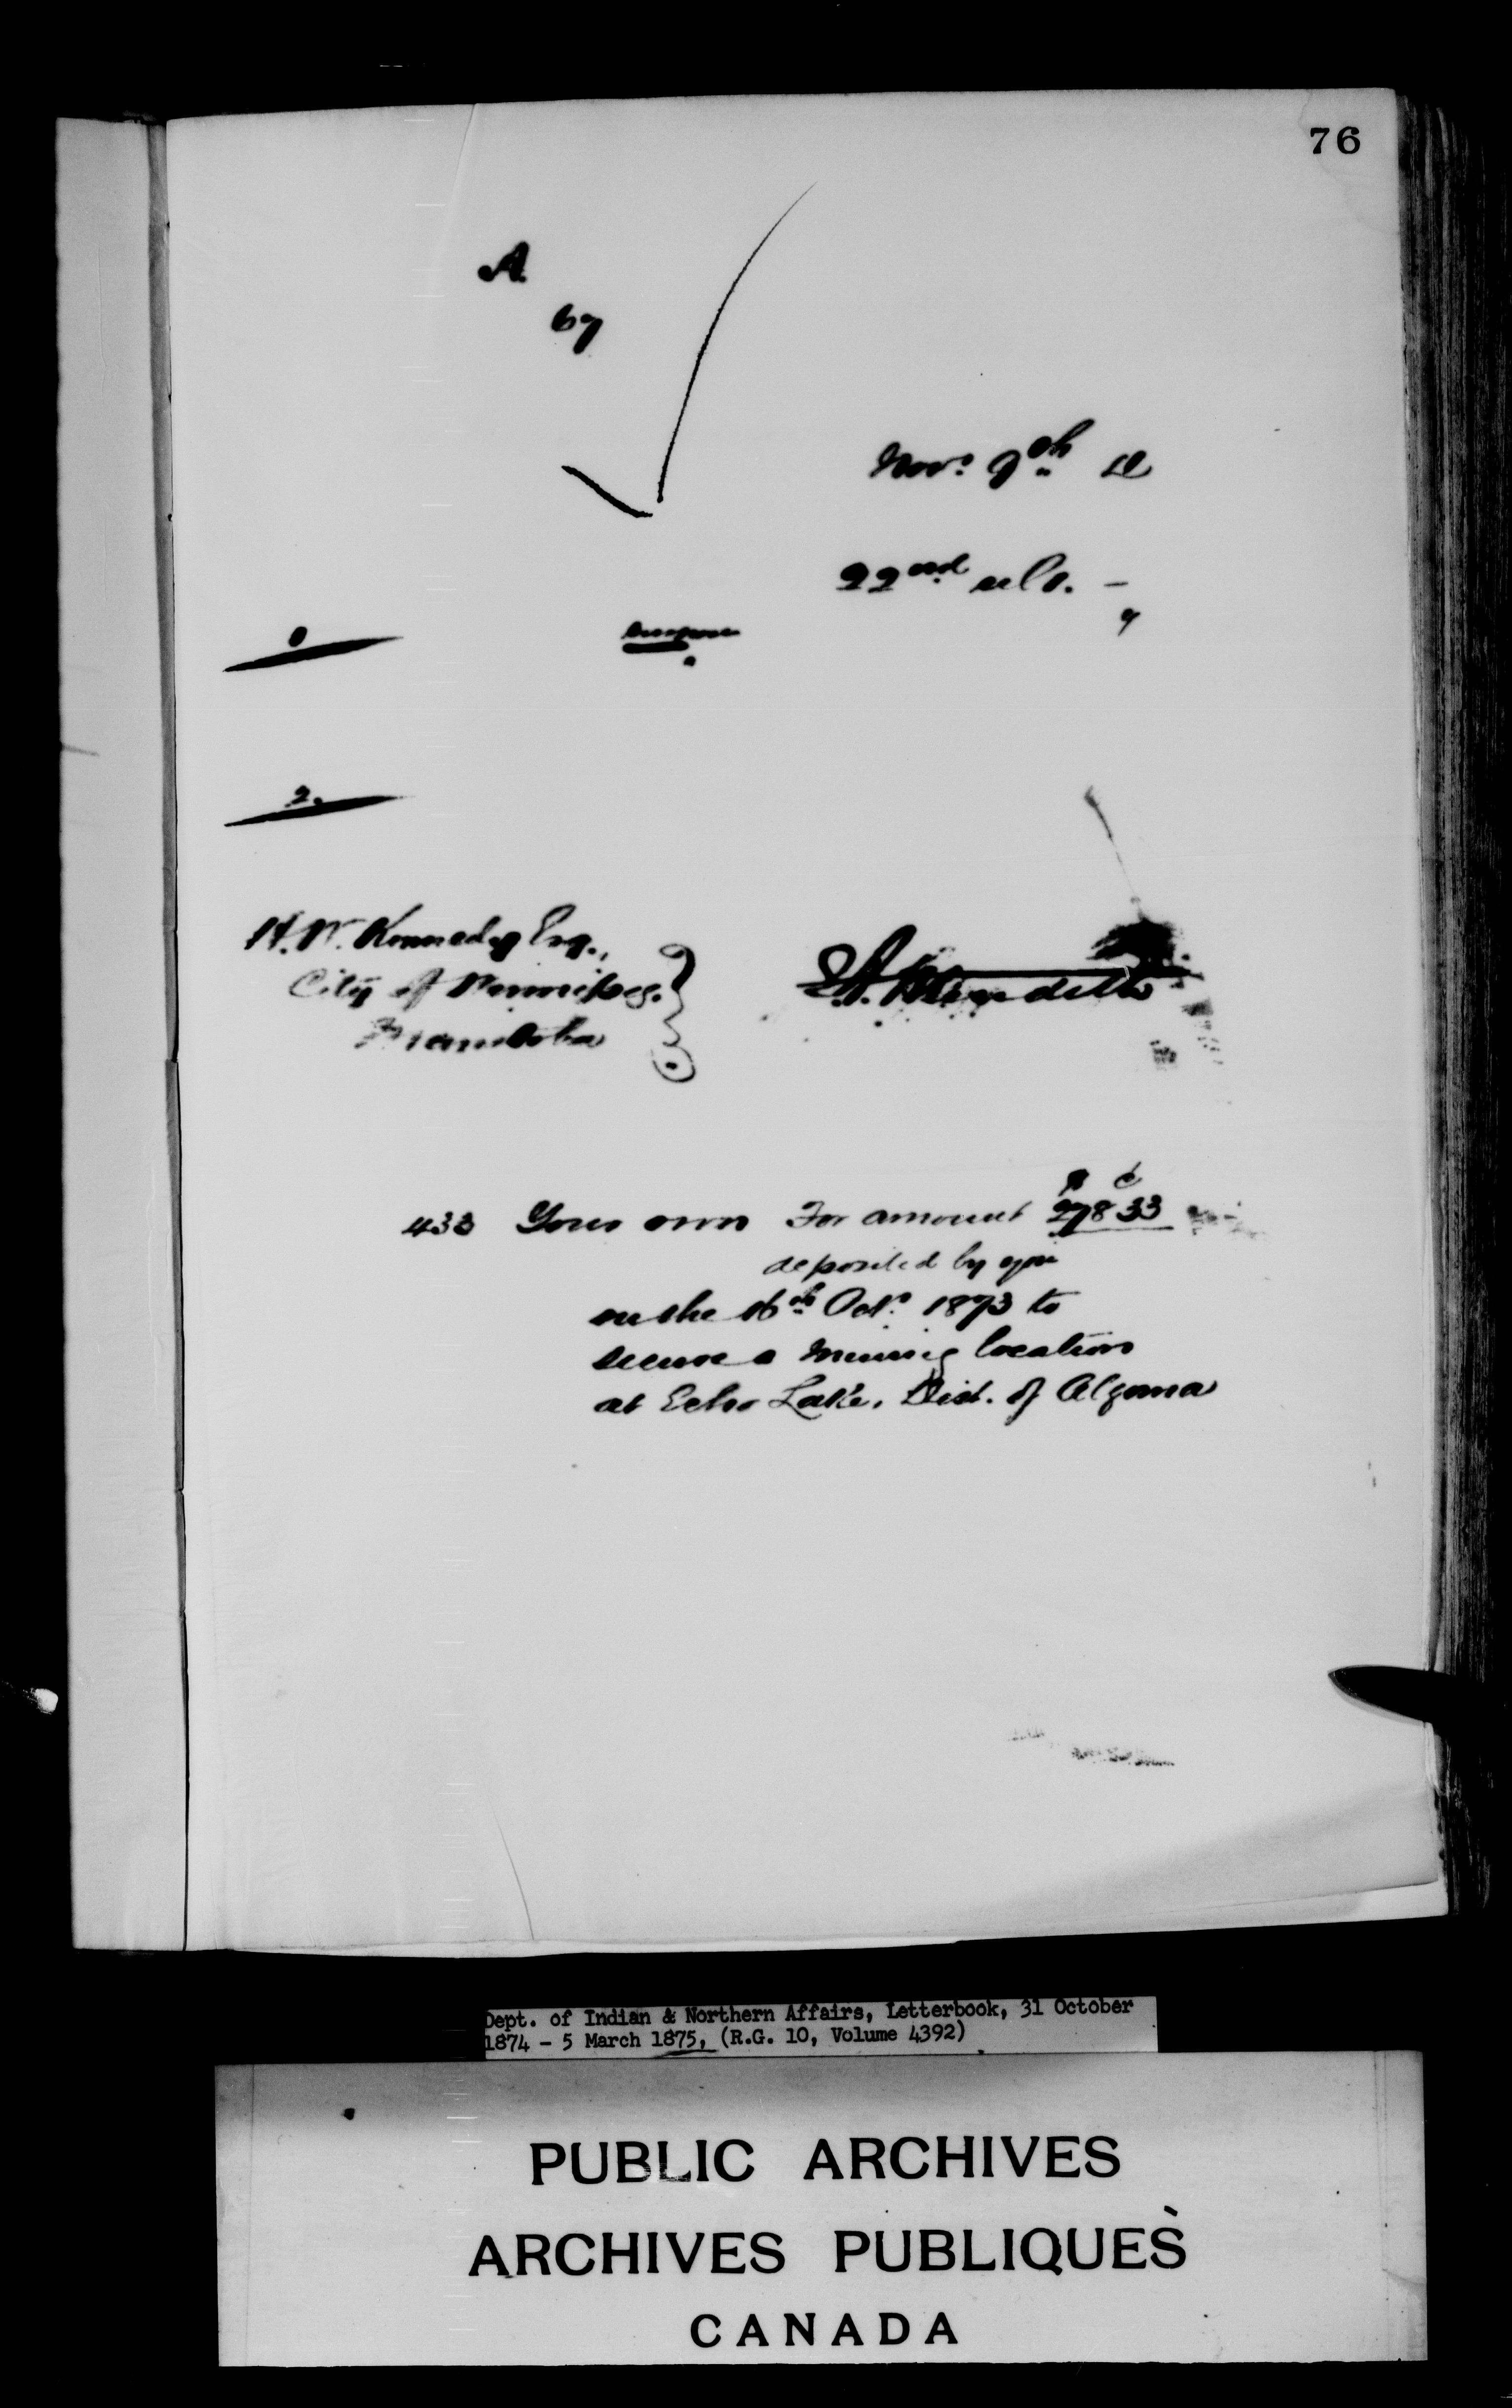 76
A
67
Nov. 9th
22nd ulto. –
2.
H. W. Kennedy Esq.,
City of Winnipeg.
Manitoba
E. A. Meredith
433 Your own For amount $ c 278 33
deposited by you
on the 16th Octr. 1873 to
secure a Mining location
at Echo Lake, Dist. of Algoma
Dept. of Indian & Northern Affairs, Letterbook, 31 October
1874 – 5 March 1875, (R.G. 10, Volume 4392)
PUBLIC ARCHIVES
ARCHIVES PUBLIQUES
CANADA